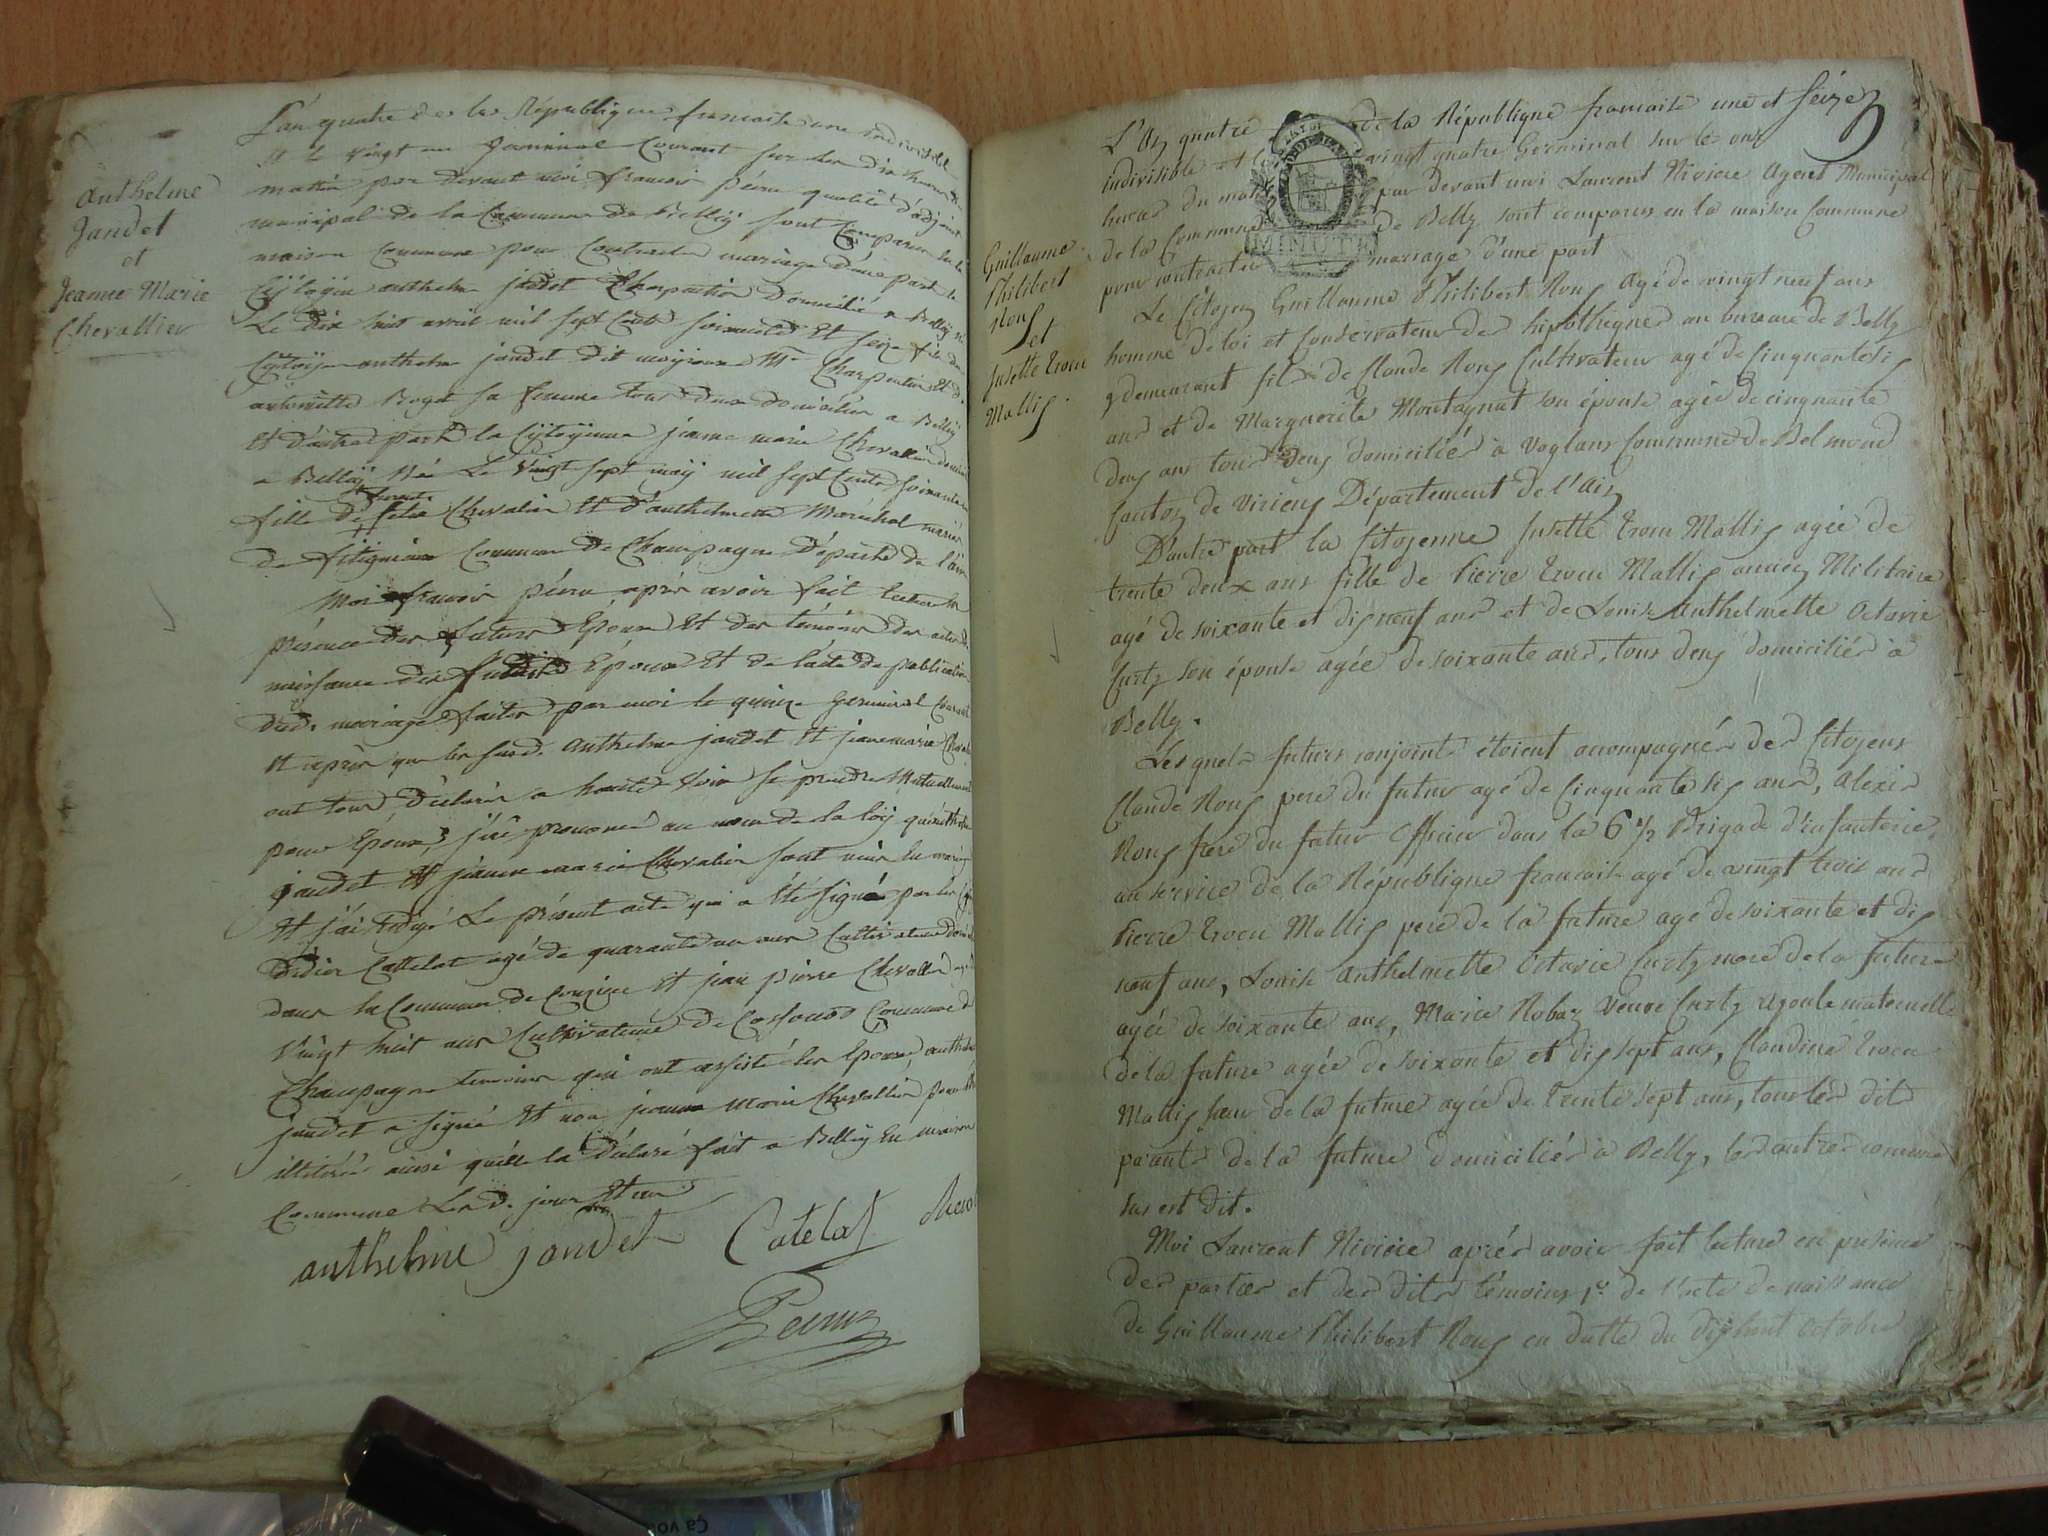 Anthelme
Jandet
et
Jeanne Marie
Chevallier
L'an quatre de la République francaise une indivisible
et le vingt un Germinal Courant sur les dix heures du
matin par devant moi francois pérra qualité d'adjoint
municipal de la Commune de Belleÿ sont Comparus en la
maison Commune pour Contracter mariage d'une part le
Citoÿen anthelme jandet Charpentier Domicilié a Belleÿ né
Le dix huit avril mil sept Cents soixante et seize fils du
Citoÿen anthelme jandet dit Charpentier et d'
antoinette Roget sa femme tous deux domiciliés a Belleÿ
Et d'autre part la Citoÿenne jeanne marie Chevallier domiciliée
a Belleÿ Née Le vingt sept maÿ mil sept Cents soixante
fille de Chevalier Et d'anthelmette Maréchal mariés
de fitignieu Commune de Champagne départe de l'ain
Moi francois pérra après avoir fait lecture en
présence des futurs Epoux Et des témoins des actes de
naissance des Epoux Et de l'acte de publication
dud. mariage faites par moi le quinze Germinal Courant
Et après que les susd. Anthelme jandet Et jeanne marie Chevalier
ont tous, déclaré a haute voix se prendre Mutuellement
pour Epoux, j'ai prononcé au nom de la loÿ qu'anthelme
jandet Et jeanne marie Chevalier sont unis en mariage
Et j'ai rédigé Le présent acte qui a Eté signé par les
didier Cattelat agé de quarante un ans Cultivateur
dans la Commune de Et jean pierre Chevallier
Vingt huit ans Cultivateur de Commune de
Champagne temoins qui ont assisté les Epoux, anthelme
jandet a signé Et non jeanne Marie Chevallier pour être
illitérée ainsi quelle la déclaré fait a Belleÿ En maison
Commune Les d. jour Et an
anthelme jandet Catelat
Perra
Seize
L'An quatre de la République francaise une et
indivisible et le vingt quatre Germinal sur les onze
heures du matin par devant moi Laurent Riviere Agent Municipal
de la Commune de Belly sont comparus en la maison Commune
pour contracter marriage d'une part
MINUTE
Guillaume
Philibert
Rouf
et
Josette Trocu
Mallif
Le Citoyen Guillaume Philibert Rouf Agé de vingt neuf ans
homme de loi et Conservateur des hipotheques au bureau de Belly
y demeurant fils de Claude Rouf Cultivateur agé de Cinquante sis
ans et de Marguerite Montagnat son épouse agée de cinquante
deus ans tous deus domiciliés à Voglans Commune de Belmond
Canton de Virieus Département de l'Ain
D'autre part la Citoyenne Josette Trocu Mallif agée de
trente deux ans fille de Pierre Trocu Mallif ancien Militaire
agé de soixante et dis neuf ans et de Louise Anthelmette Octavie
Curtz son épouse agée de soixante ans, tous deus domiciliés à
Belly.
Lesquels futurs conjoints étoient accompagnés des Citoyens
Claude Rouf pere du futur agé de Cinquante sis ans, Alexis
Rouf frere du futur Officier dans la 6 1/2 Brigade d'infanterie
au service de la République francaise agé de vingt trois ans
Pierre Trocu Mallif pere de la future agé de soixante et dis
neuf ans, Louise Anthelmette Octavie Curtz mere de la future
agée de soixante ans, Marie Robaz Veuve Curtz ayeule maternelle
de la future agée de soixante et dis sept ans, Claudine Trocu
Mallif sœur de la future agée de trente sept ans, tous les dits
parants de la future domiciliés à Belly, les autres comme
sus est dit.
Moi Laurent Riviere après avoir fait lecture en présence
des parties et des dits témoins 1º. de l'acte de naissance
de Guillaume Philibert Rouf en datte du dishuit octobre